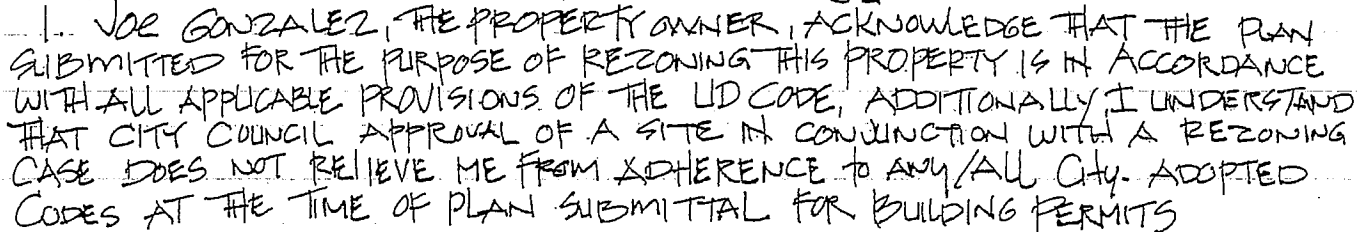 I. Joe GONZALEZ, THE PROPERTY OWNER, ACKNOWLEDGE THAT THE PLAN
SUBMITTED FOR THE PURPOSE OF REZONING THIS PROPERTY IS IN ACCORDANCE
WITH ALL APPLICABLE PROVISIONS OF THE UD CODE, ADDITIONALLY, I UNDERSTAND
THAT CITY COUNCIL APPROVAL OF A SITE IN CONJUNCTION WITH A REZONING
CASE DOES NOT RELIEVE ME FROM ADHERENCE to ANY/ALL City. ADOPTED
CODES AT THE TIME OF PLAN SUBMITTAL FOR BUILDING PERMITS